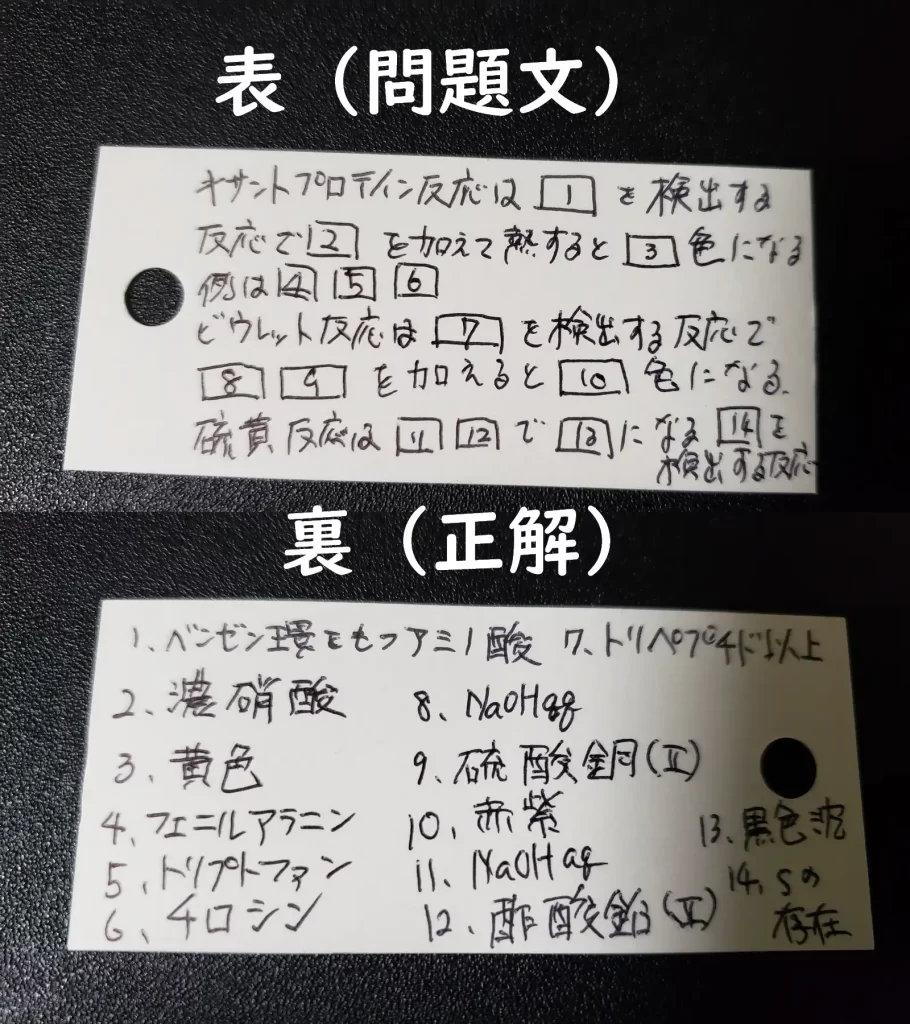 表（問題文）
キサントプロテイン反応は 1 を検出する
反応で 2 を加えて熱すると 3 色になる
例は 4 5 6
ビウレット反応は 7 を検出する反応で
8 9 を加えると 10 色になる.
硫黄反応は 11 12 で 13 になる 14 を
検出する反応
裏（正解）
1、ベンゼン環をもつアミノ酸 7、トリペプチド以上
2、濃硝酸 8、NaOHaq
3、黄色 9、硫酸銅(Ⅱ)
4、フェニルアラニン 10、赤紫 13、黒色沈
5、トリプトファン 11、NaOHaq 14、Sの
6、チロシン 12、酢酸鉛(Ⅱ) 存在